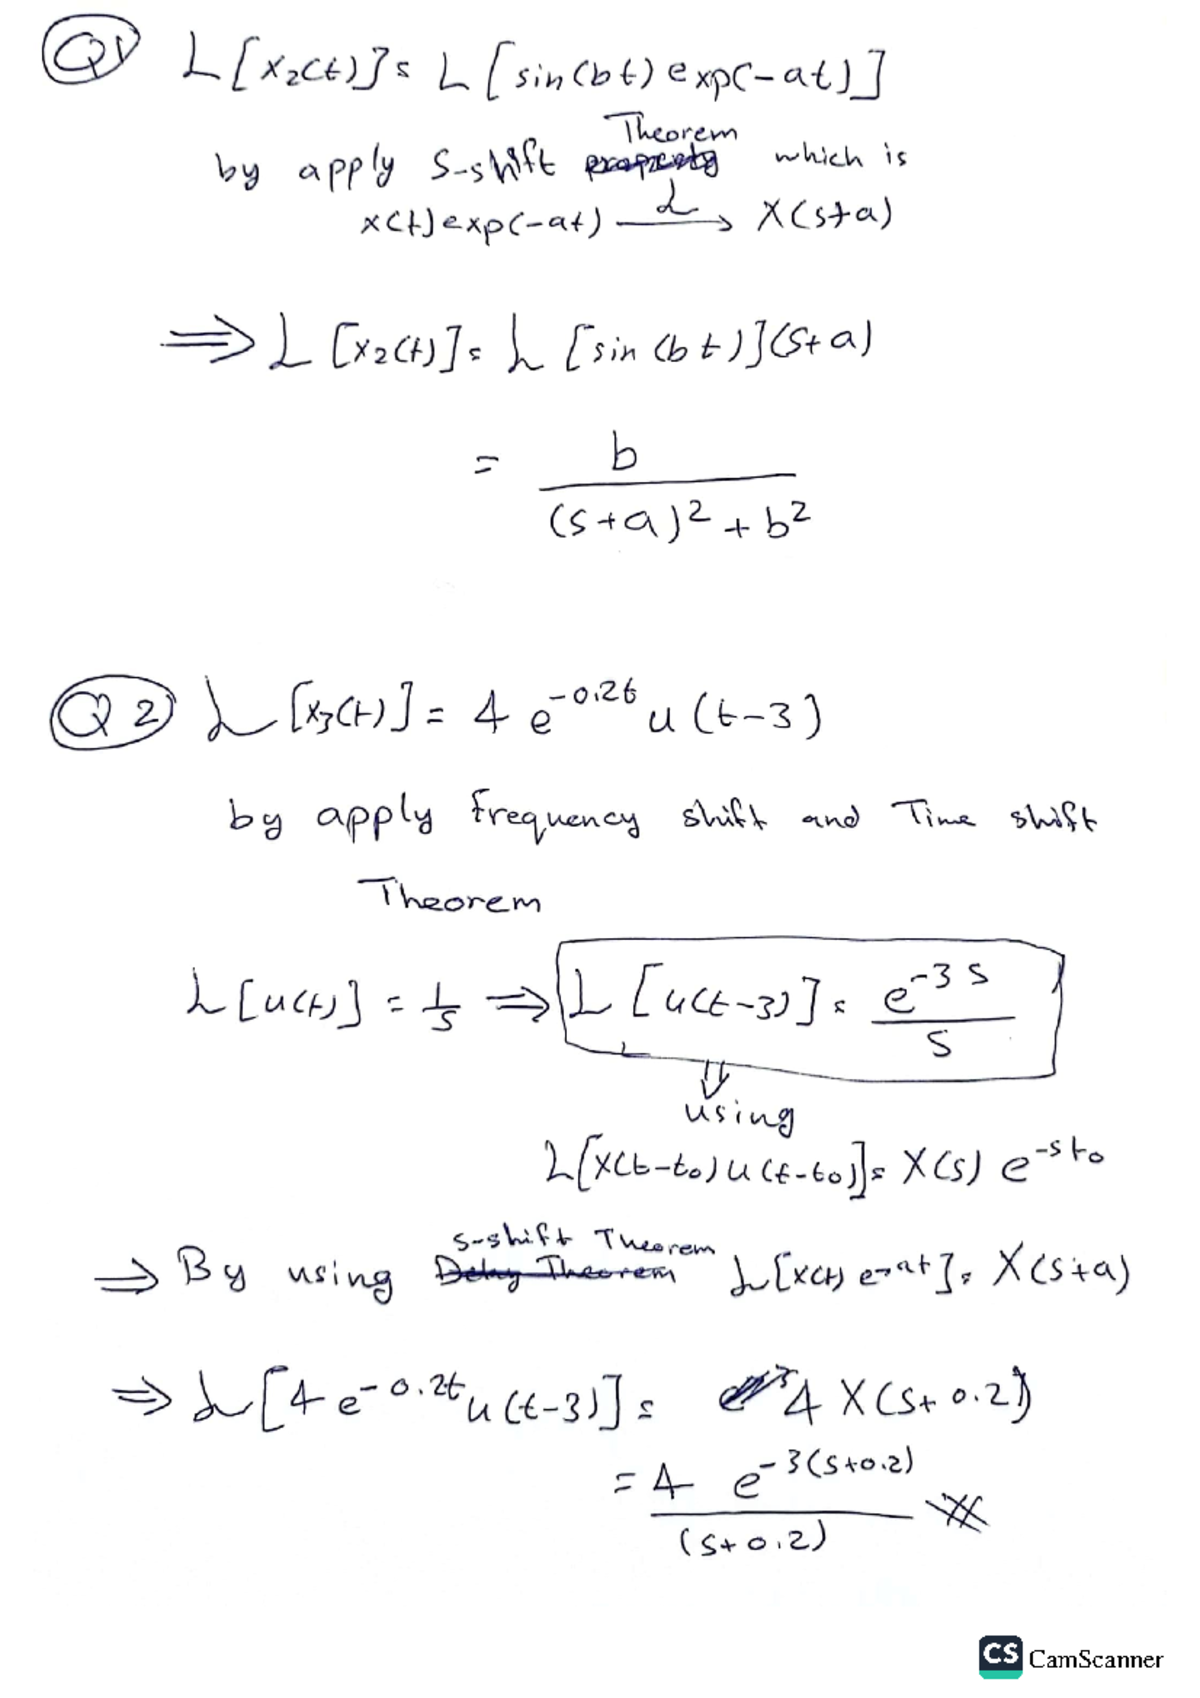 Q1 L[x₂(t)] = L[sin(bt) exp(-at)]
by apply S-shift Theorem which is
x(t) exp(-at) —L→ X(s+a)
⇒ L[x₂(t)] = L[sin(bt)](s+a)
= b / ((s+a)² + b²)
Q2 L[x₃(t)] = 4 e^(-0.2t) u(t-3)
by apply frequency shift and Time shift
Theorem
L[u(t)] = 1/s ⇒ L[u(t-3)] = e^(-3s) / s
⇓
using
L[x(t-t₀) u(t-t₀)] = X(s) e^(-st₀)
⇒ By using s-shift Theorem L[x(t) e^(-at)] = X(s+a)
⇒ L[4 e^(-0.2t) u(t-3)] = 4 X(s+0.2)
= 4 e^(-3(s+0.2)) / (s+0.2)
CS CamScanner